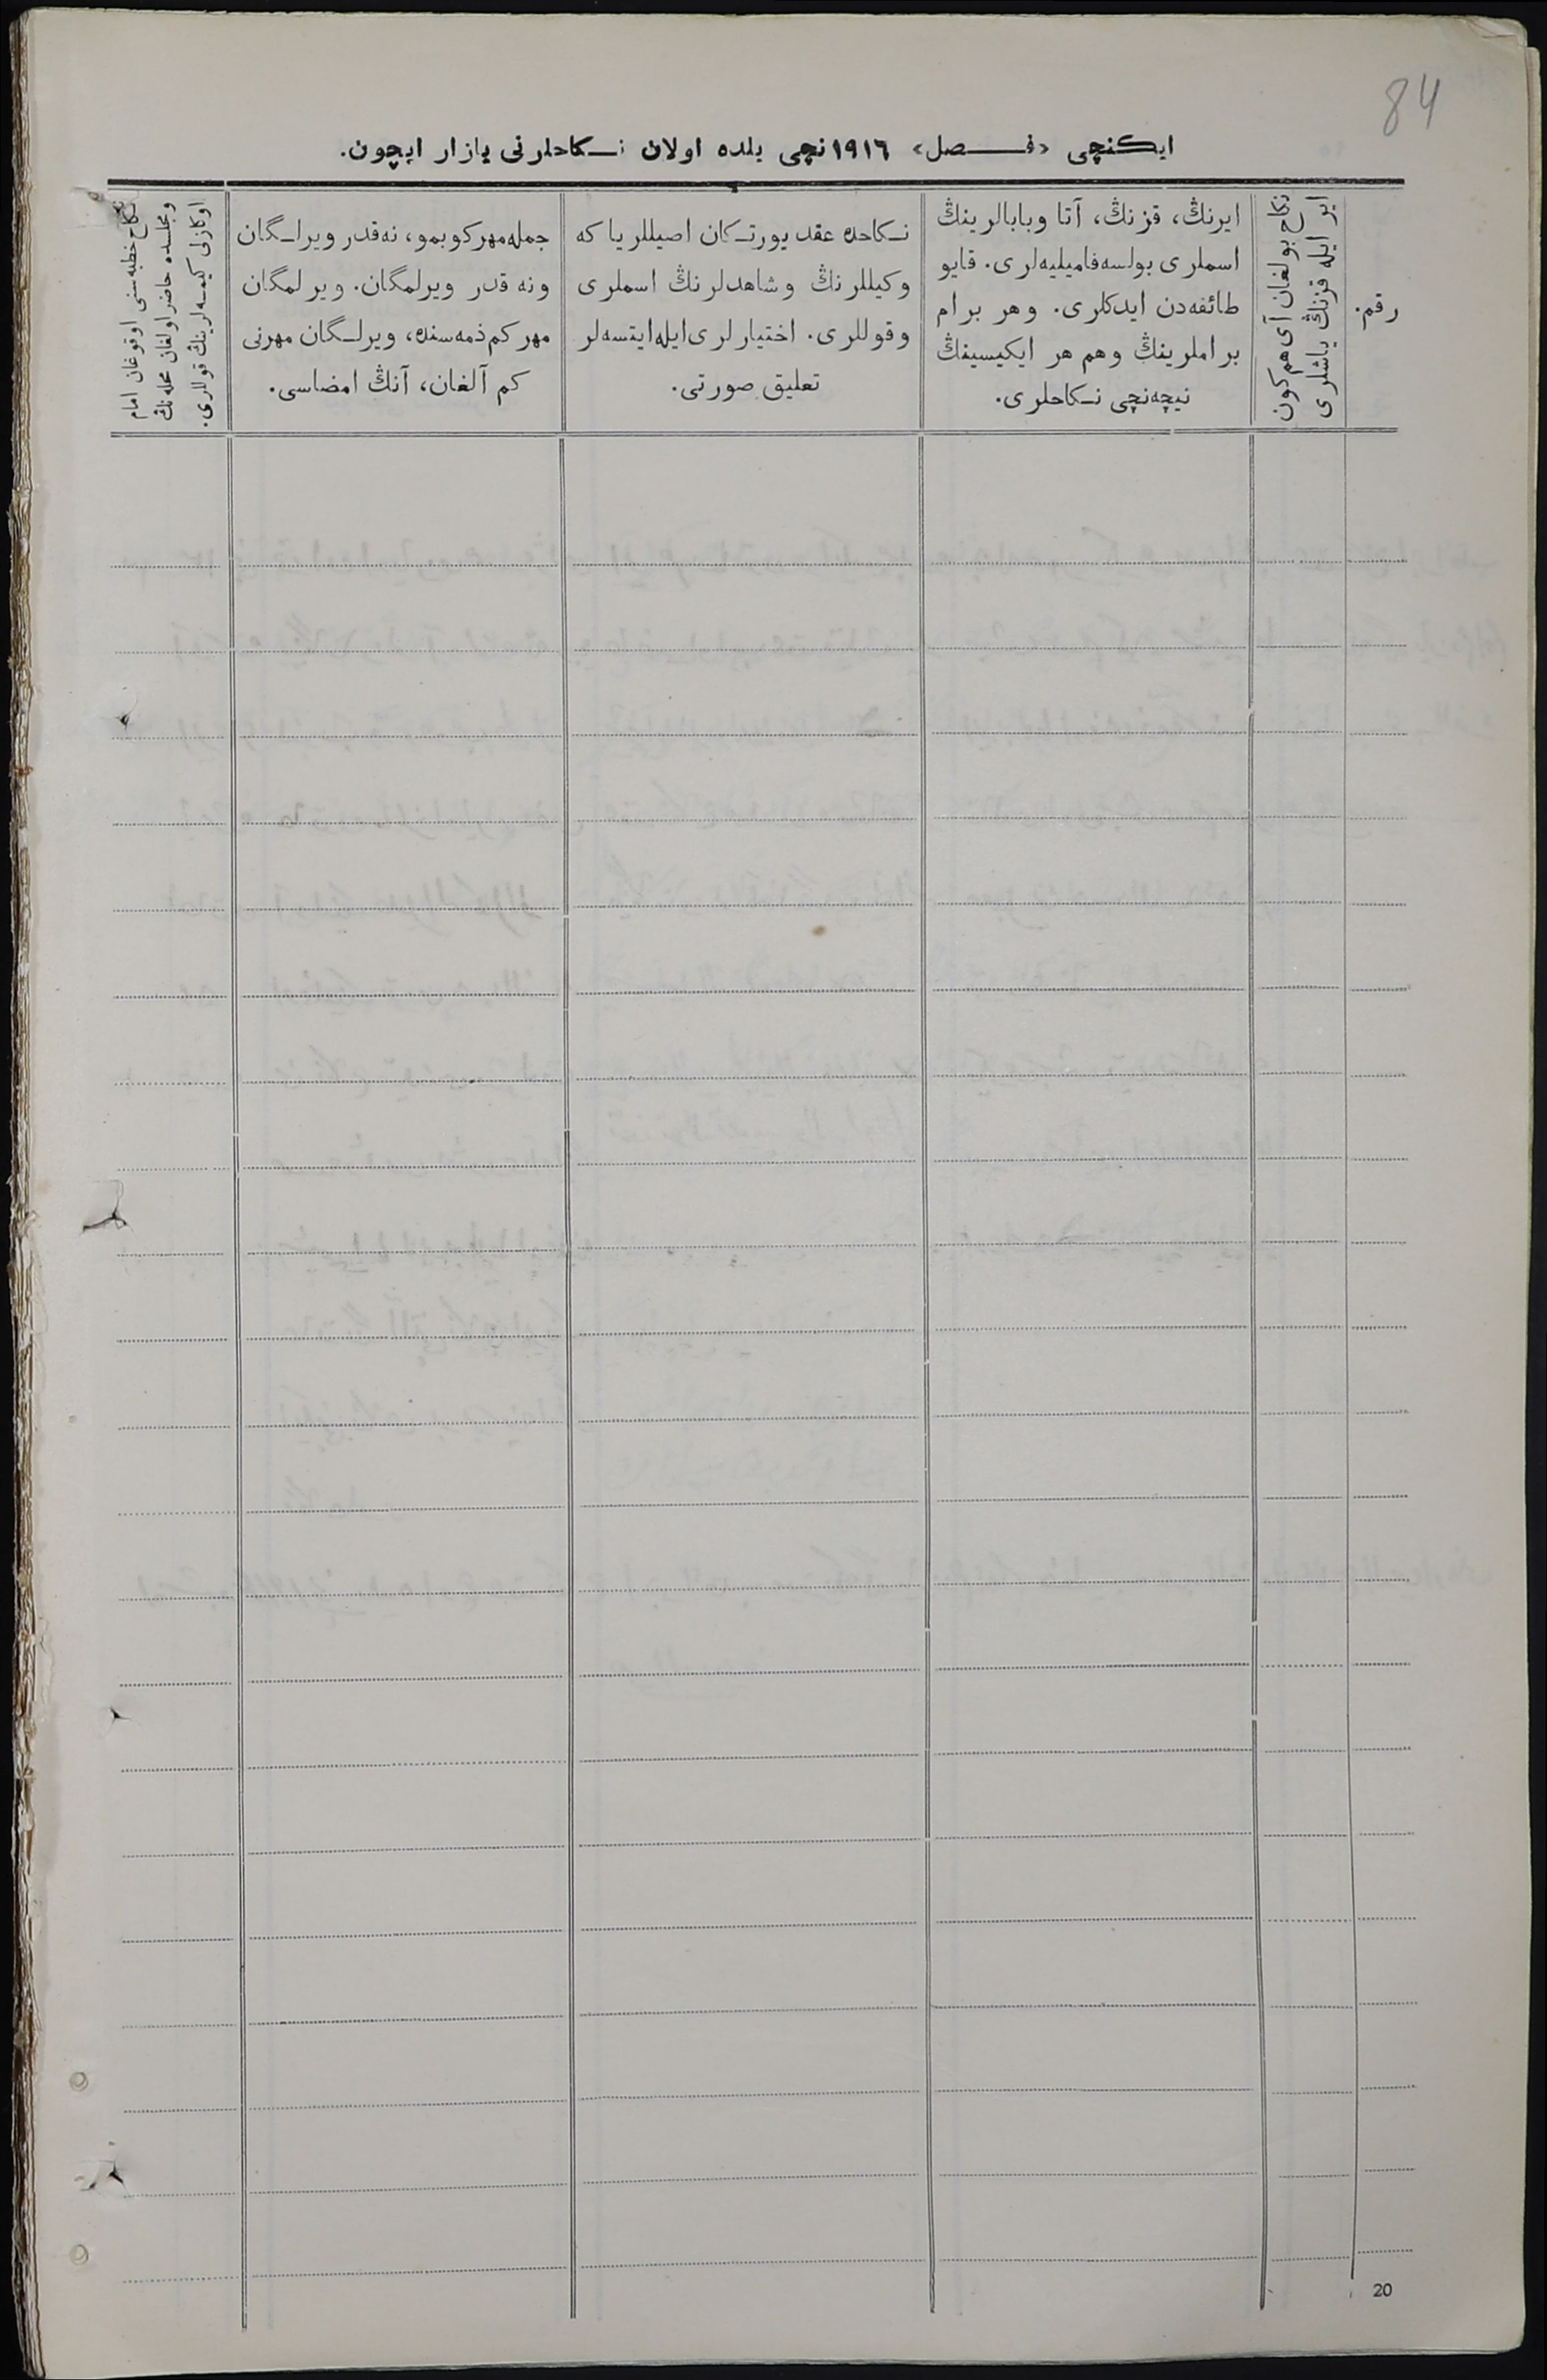 84
ایكنچی «فـــصل» ١٩١٦نچی یلده اولان نـكاحلرنی یازار ایچون.
رقم.
ایر ایله قزنڭ یاشلری
نكاح بولغان آی هم كون
ایرنڭ، قزنڭ، آتا وبابالرینڭ
اسملری بولسه فامیلیه‌لری. قایو
طائفه‌دن ایدكلری. وهر برام
براملرینڭ وهم هر ایكیسینڭ
نیچه‌نچی نـكاحلری.
نـكاحده عقد یورتـكان اصیللر یا كه
وكیللرنڭ وشاهدلرنڭ اسملری
وقوللری. اختیارلری ایله ایتسه‌لر
تعلیق صورتی.
جمله مهر كو بمو، نه‌قدر ویرلـگان
ونه قدر ویرلمگان. ویرلمگان
مهر كم ذمه‌سنده، ویرلـگان مهرنی
كم آلغان، آنڭ امضاسی.
نكاح خطبه‌سنی اوقوغان امام
ومجلسده حاضر اولغان محله‌نڭ
اوكازلی كیمسه‌لرینڭ قوللری.
20